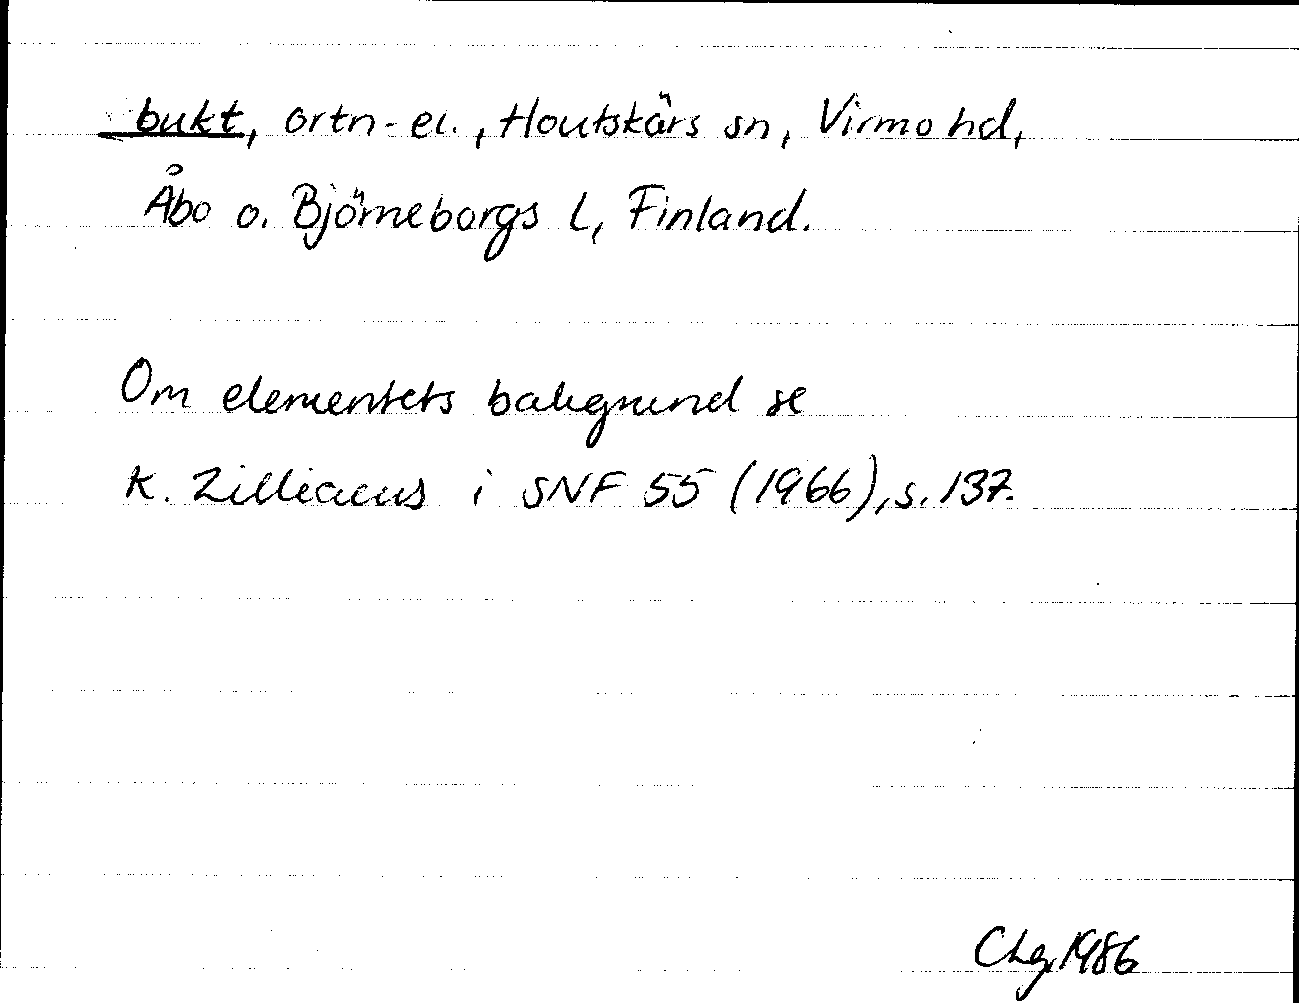 bukt, ortn-el., Houtskärs sn, Virmo hd,
Åbo o. Björneborgs L, Finland.
Om elementets bakgrund se
K. Zilliacus i SNF 55 (1966), s. 137.
1986